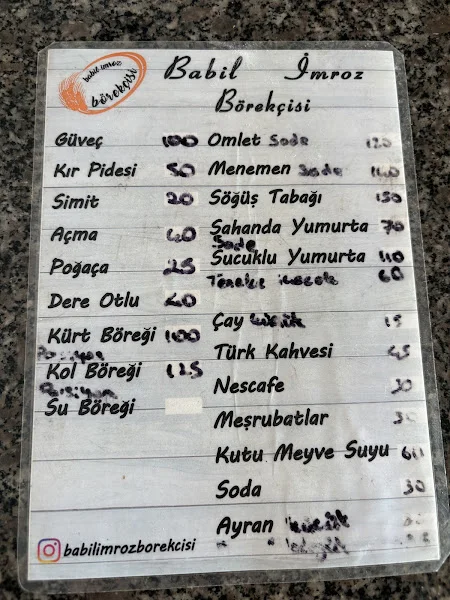 babil imroz
börekçisi
Babil İmroz
Börekçisi
Güveç 100
Kır Pidesi 50
Simit 20
Açma 40
Poğaça 25
Dere Otlu 40
Kürt Böreği 100
Porsiyon
Kol Böreği 125
Porsiyon
Su Böreği
Omlet Sade 120
Menemen Sade
Söğüş Tabağı 150
Sahanda Yumurta 70
Sade
Sucuklu Yumurta 110
60
Çay küçük 15
Türk Kahvesi 45
Nescafe
Meşrubatlar
Kutu Meyve Suyu 60
Soda 30
Ayran küçük
babilimrozborekcisi